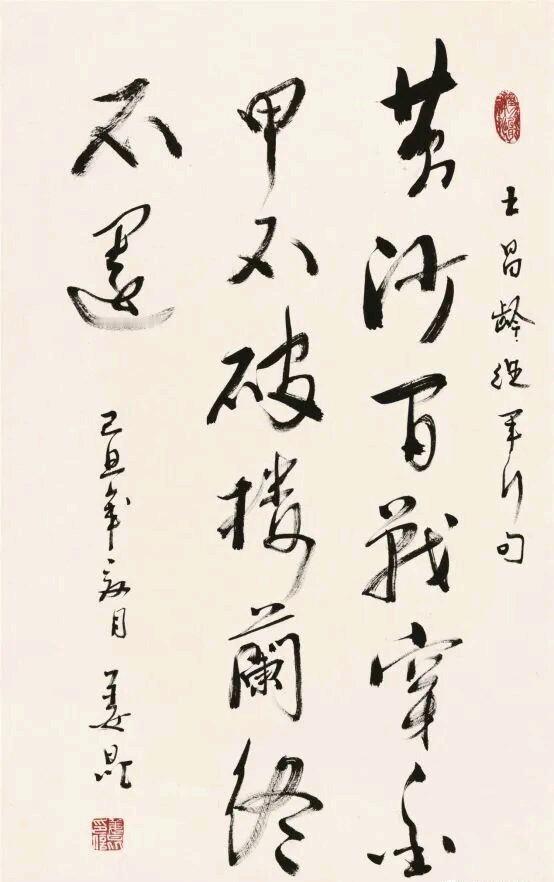 王昌龄从军行句
黄沙百战穿金
甲不破楼蘭终
不還
己丑年 月 姜昆